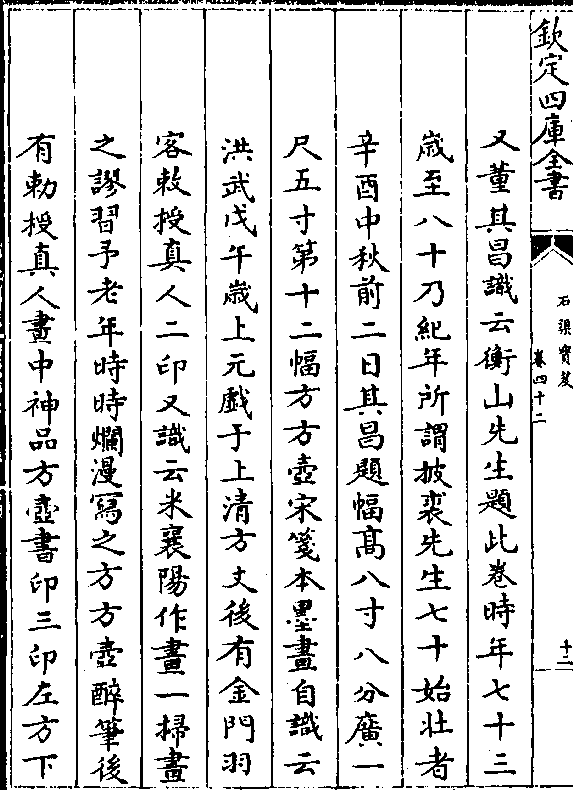 欽定四庫全書
石渠寶笈
卷四十二
十二
又董其昌識云衡山先生題此卷時年七十三
歲至八十乃紀年所謂披裘先生七十始壯者
辛酉中秋前二日其昌題幅髙八寸八分廣一
尺五寸第十二幅方方壺宋箋本墨畫自識云
洪武戊午歲上元戲于上清方丈後有金門羽
客敕授真人二印又識云米襄陽作畫一掃畫
之謬習予老年時時爛漫冩之方方壺醉筆後
有勅授真人畫中神品方壺書印三印左方下